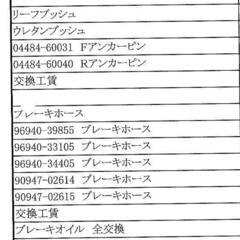 リーフブッシュ
ウレタンブッシュ
04484-60031 Fアンカーピン
04484-60040 Rアンカーピン
交換工賃
ブレーキホース
96940-39855 ブレーキホース
96940-33105 ブレーキホース
96940-34405 ブレーキホース
90947-02614 ブレーキホース
90947-02615 ブレーキホース
交換工賃
ブレーキオイル 全交換